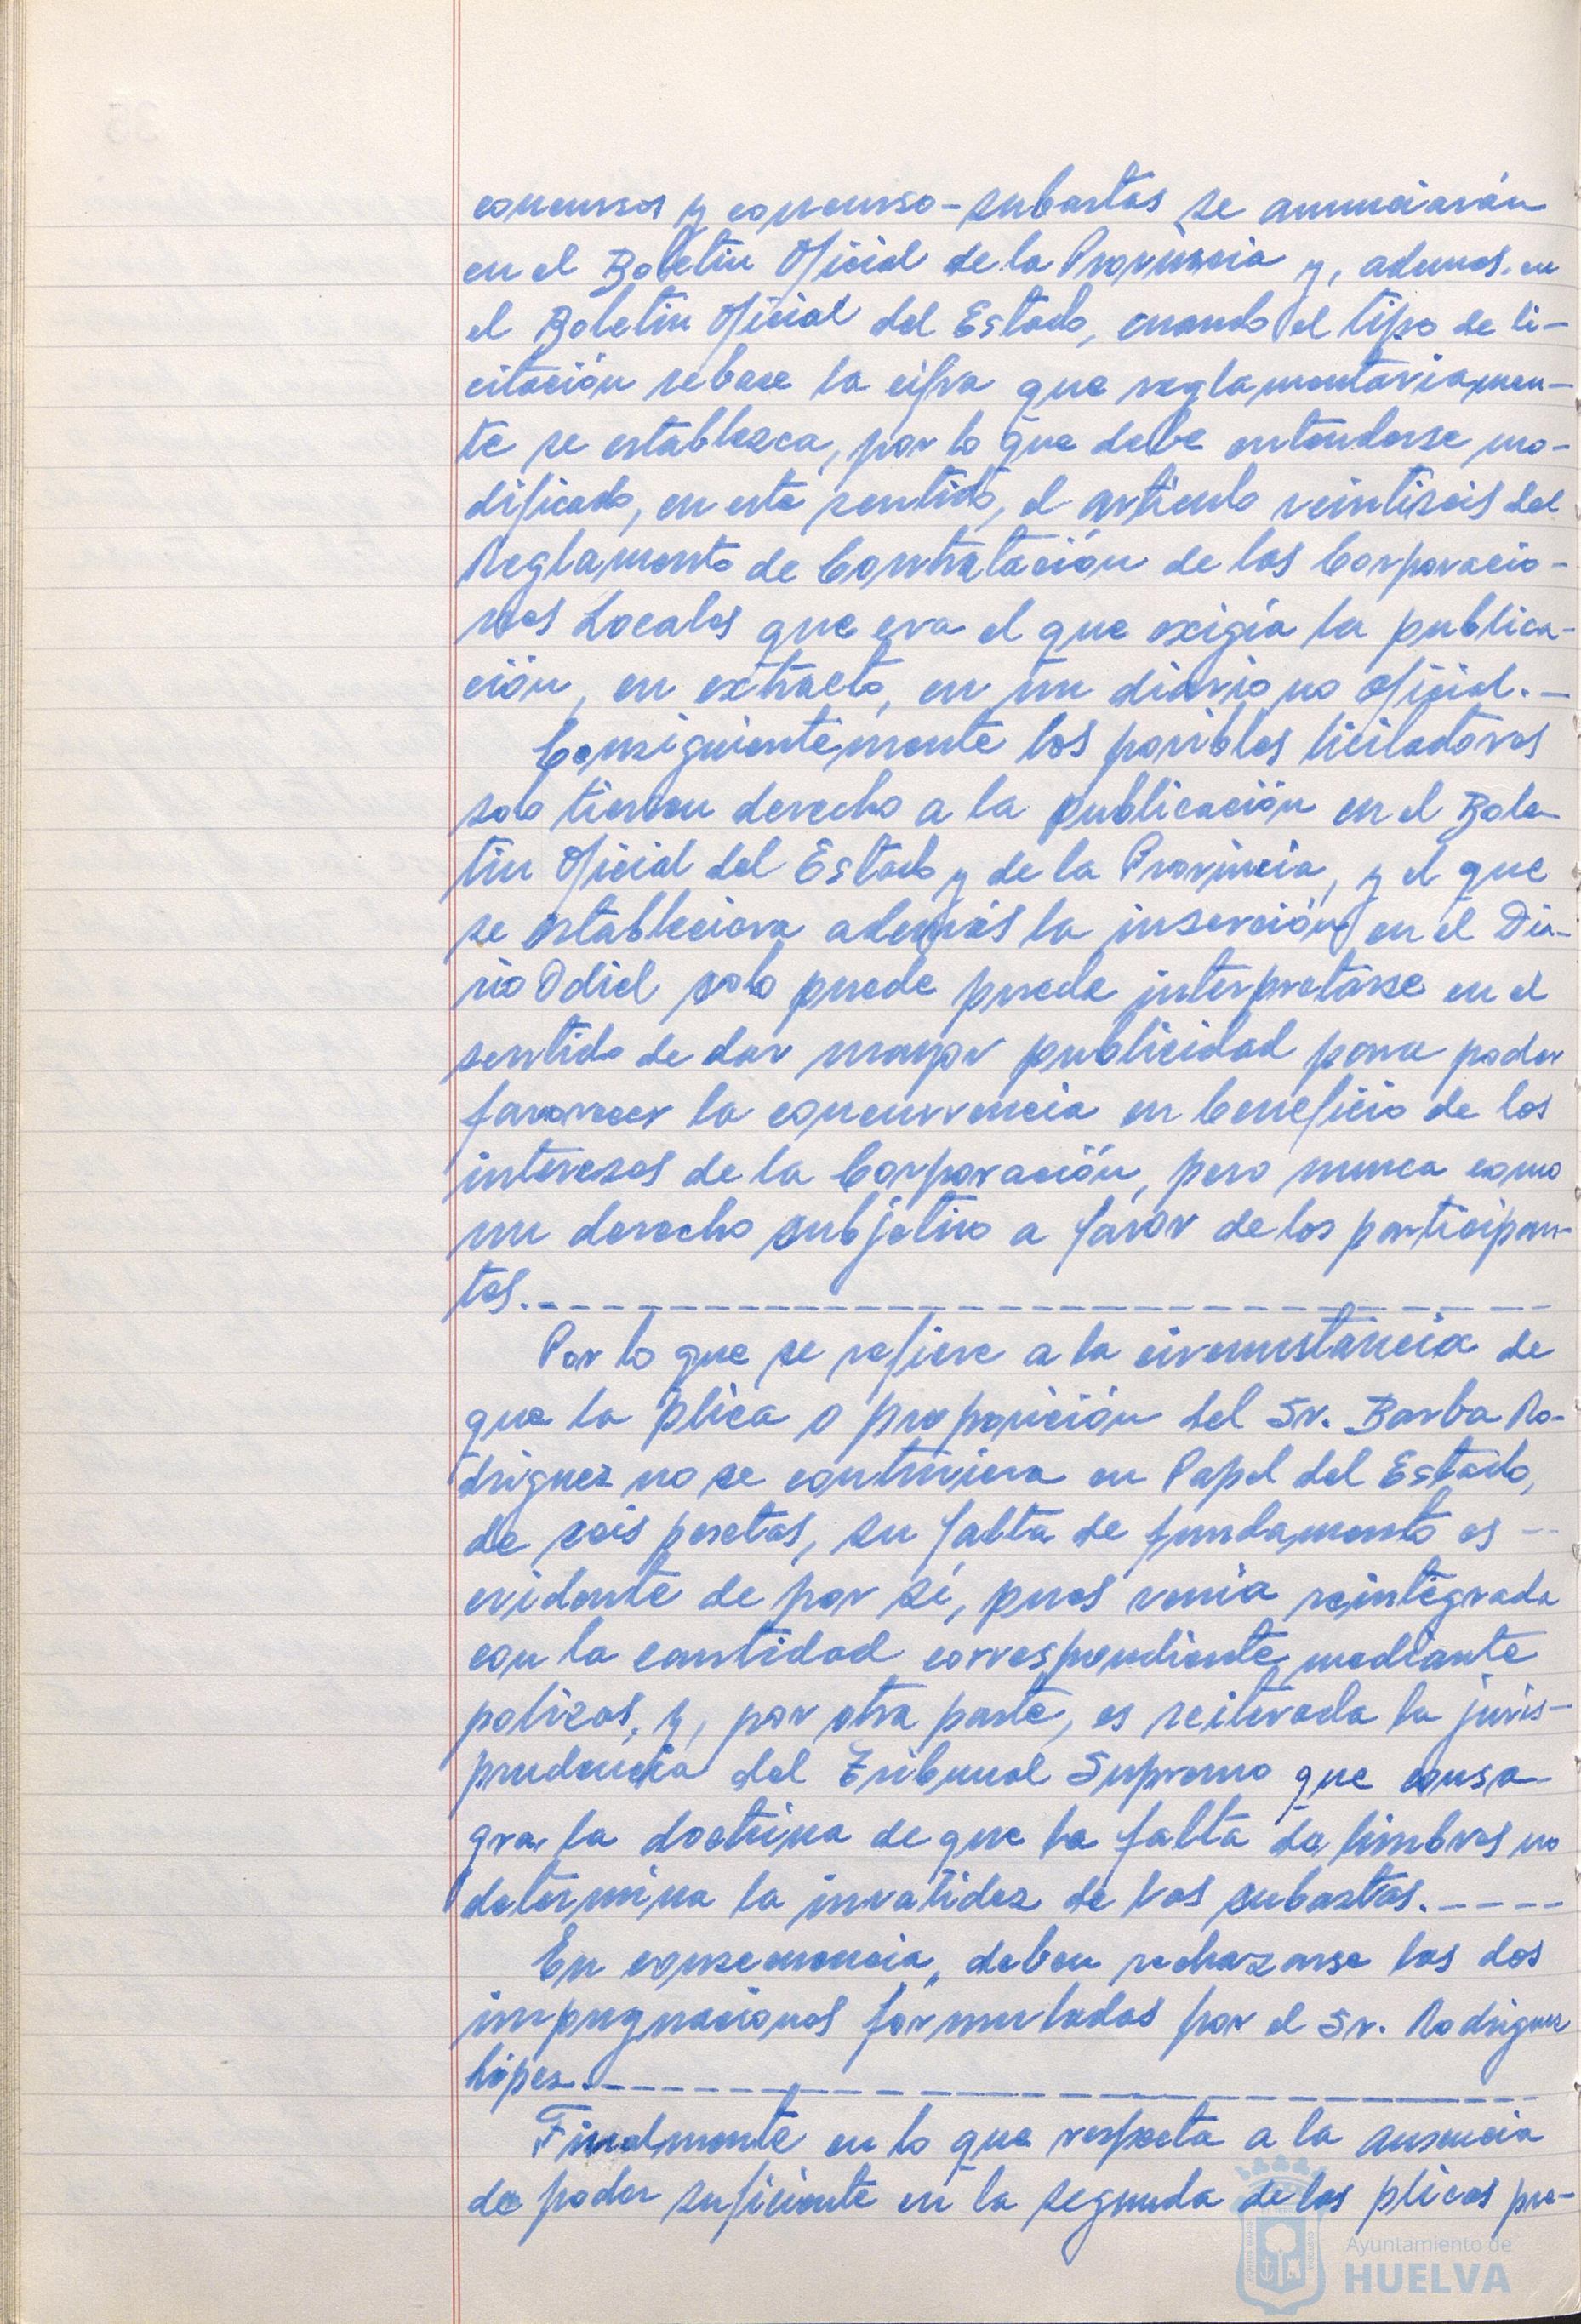 concursos y concurso-subastas se anunciarán
en el Boletin Oficial de la Provincia y, ademas en
el Boletin Oficial del Estado, cuando el tipo de li-
citación rebase la cifra que reglamentariamen-
te se establezca, por lo que debe entenderse mo-
dificado, en este sentido, el articulo veintiseis del
Reglamento de Contratación de las Corporacio-
nes Locales que era el que exigía la publica-
ción, en extracto, en un diario no oficial.-
Consiguientemente los posibles licitadores
solo tienen derecho a la publicación en el Bole-
tin Oficial del Estado y de la Provincia, y el que
se estableciera además la inserción en el Dia-
rio Odiel solo puede puede interpretarse en el
sentido de dar mayor publicidad para poder
favorecer la concurrencia en beneficio de los
intereses de la Corporación, pero nunca como
un derecho subjetivo a favor de los participan-
tes.-
Por lo que se refiere a la circunstancia de
que la plica o proposición del Sr. Barba Ro-
driguez no se contuviera en Papel del Estado,
de seis pesetas, su falta de fundamento es --
evidente de por sí, pues venia reintegrada
con la cantidad correspondiente mediante
polizas, y, por otra parte, es reiterada la juris-
prudencia del Tribunal Supremo que consa-
gra la doctrina de que la falta de timbres no
determina la invalidez de las subastas.----
En consecuencia, deben rechazarse las dos
impugnaciones formuladas por el Sr. Rodriguez
López.-
Finalmente en lo que respecta a la ausencia
de poder suficiente en la segunda de las plicas pre-
Ayuntamiento de
HUELVA